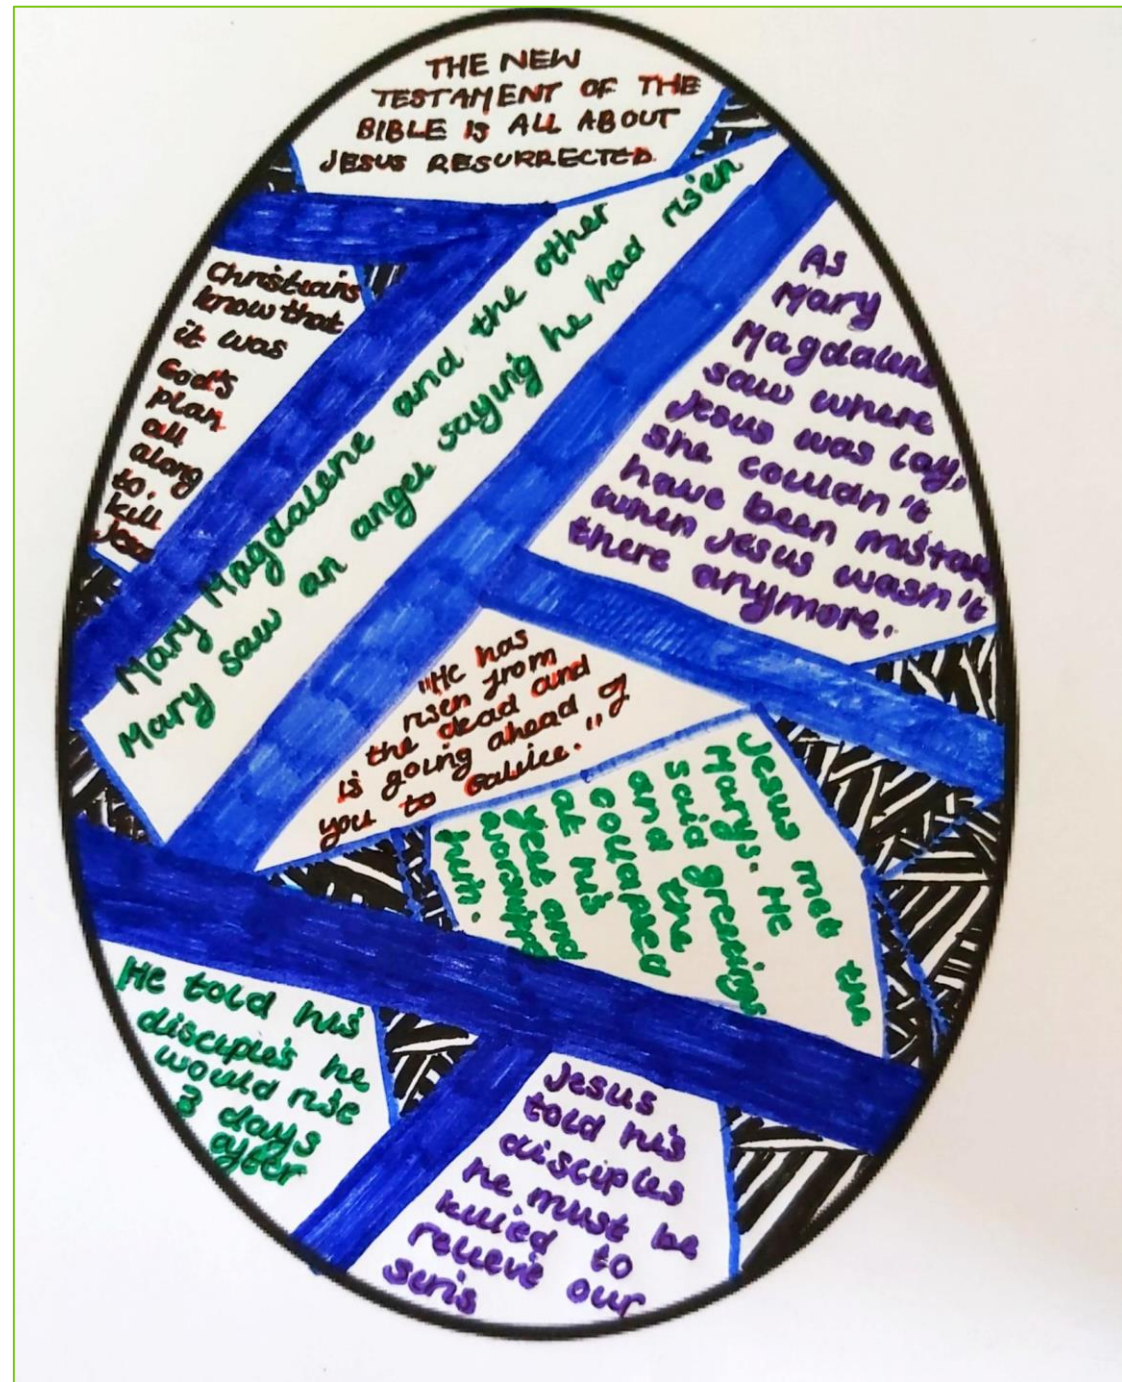 THE NEW
TESTAMENT OF THE
BIBLE IS ALL ABOUT
JESUS RESURRECTED.
Christians
know that
it was
God's
plan
all
along
to
kill
Jesus
Mary Magdalene and the other
Mary saw an angel saying he had risen
As
Mary
Magdalene
saw where
Jesus was lay,
she couldn't
have been mistak
when Jesus wasn't
there anymore.
"He has
risen from
the dead and
is going ahead of
you to Galilee."
Jesus met the
Marys. He
said greetings
and the
collapsed
at his
feet and
worshipped
him.
He told his
disciples he
would rise
3 days
after
Jesus
told his
disciples
he must be
killed to
relieve our
sins